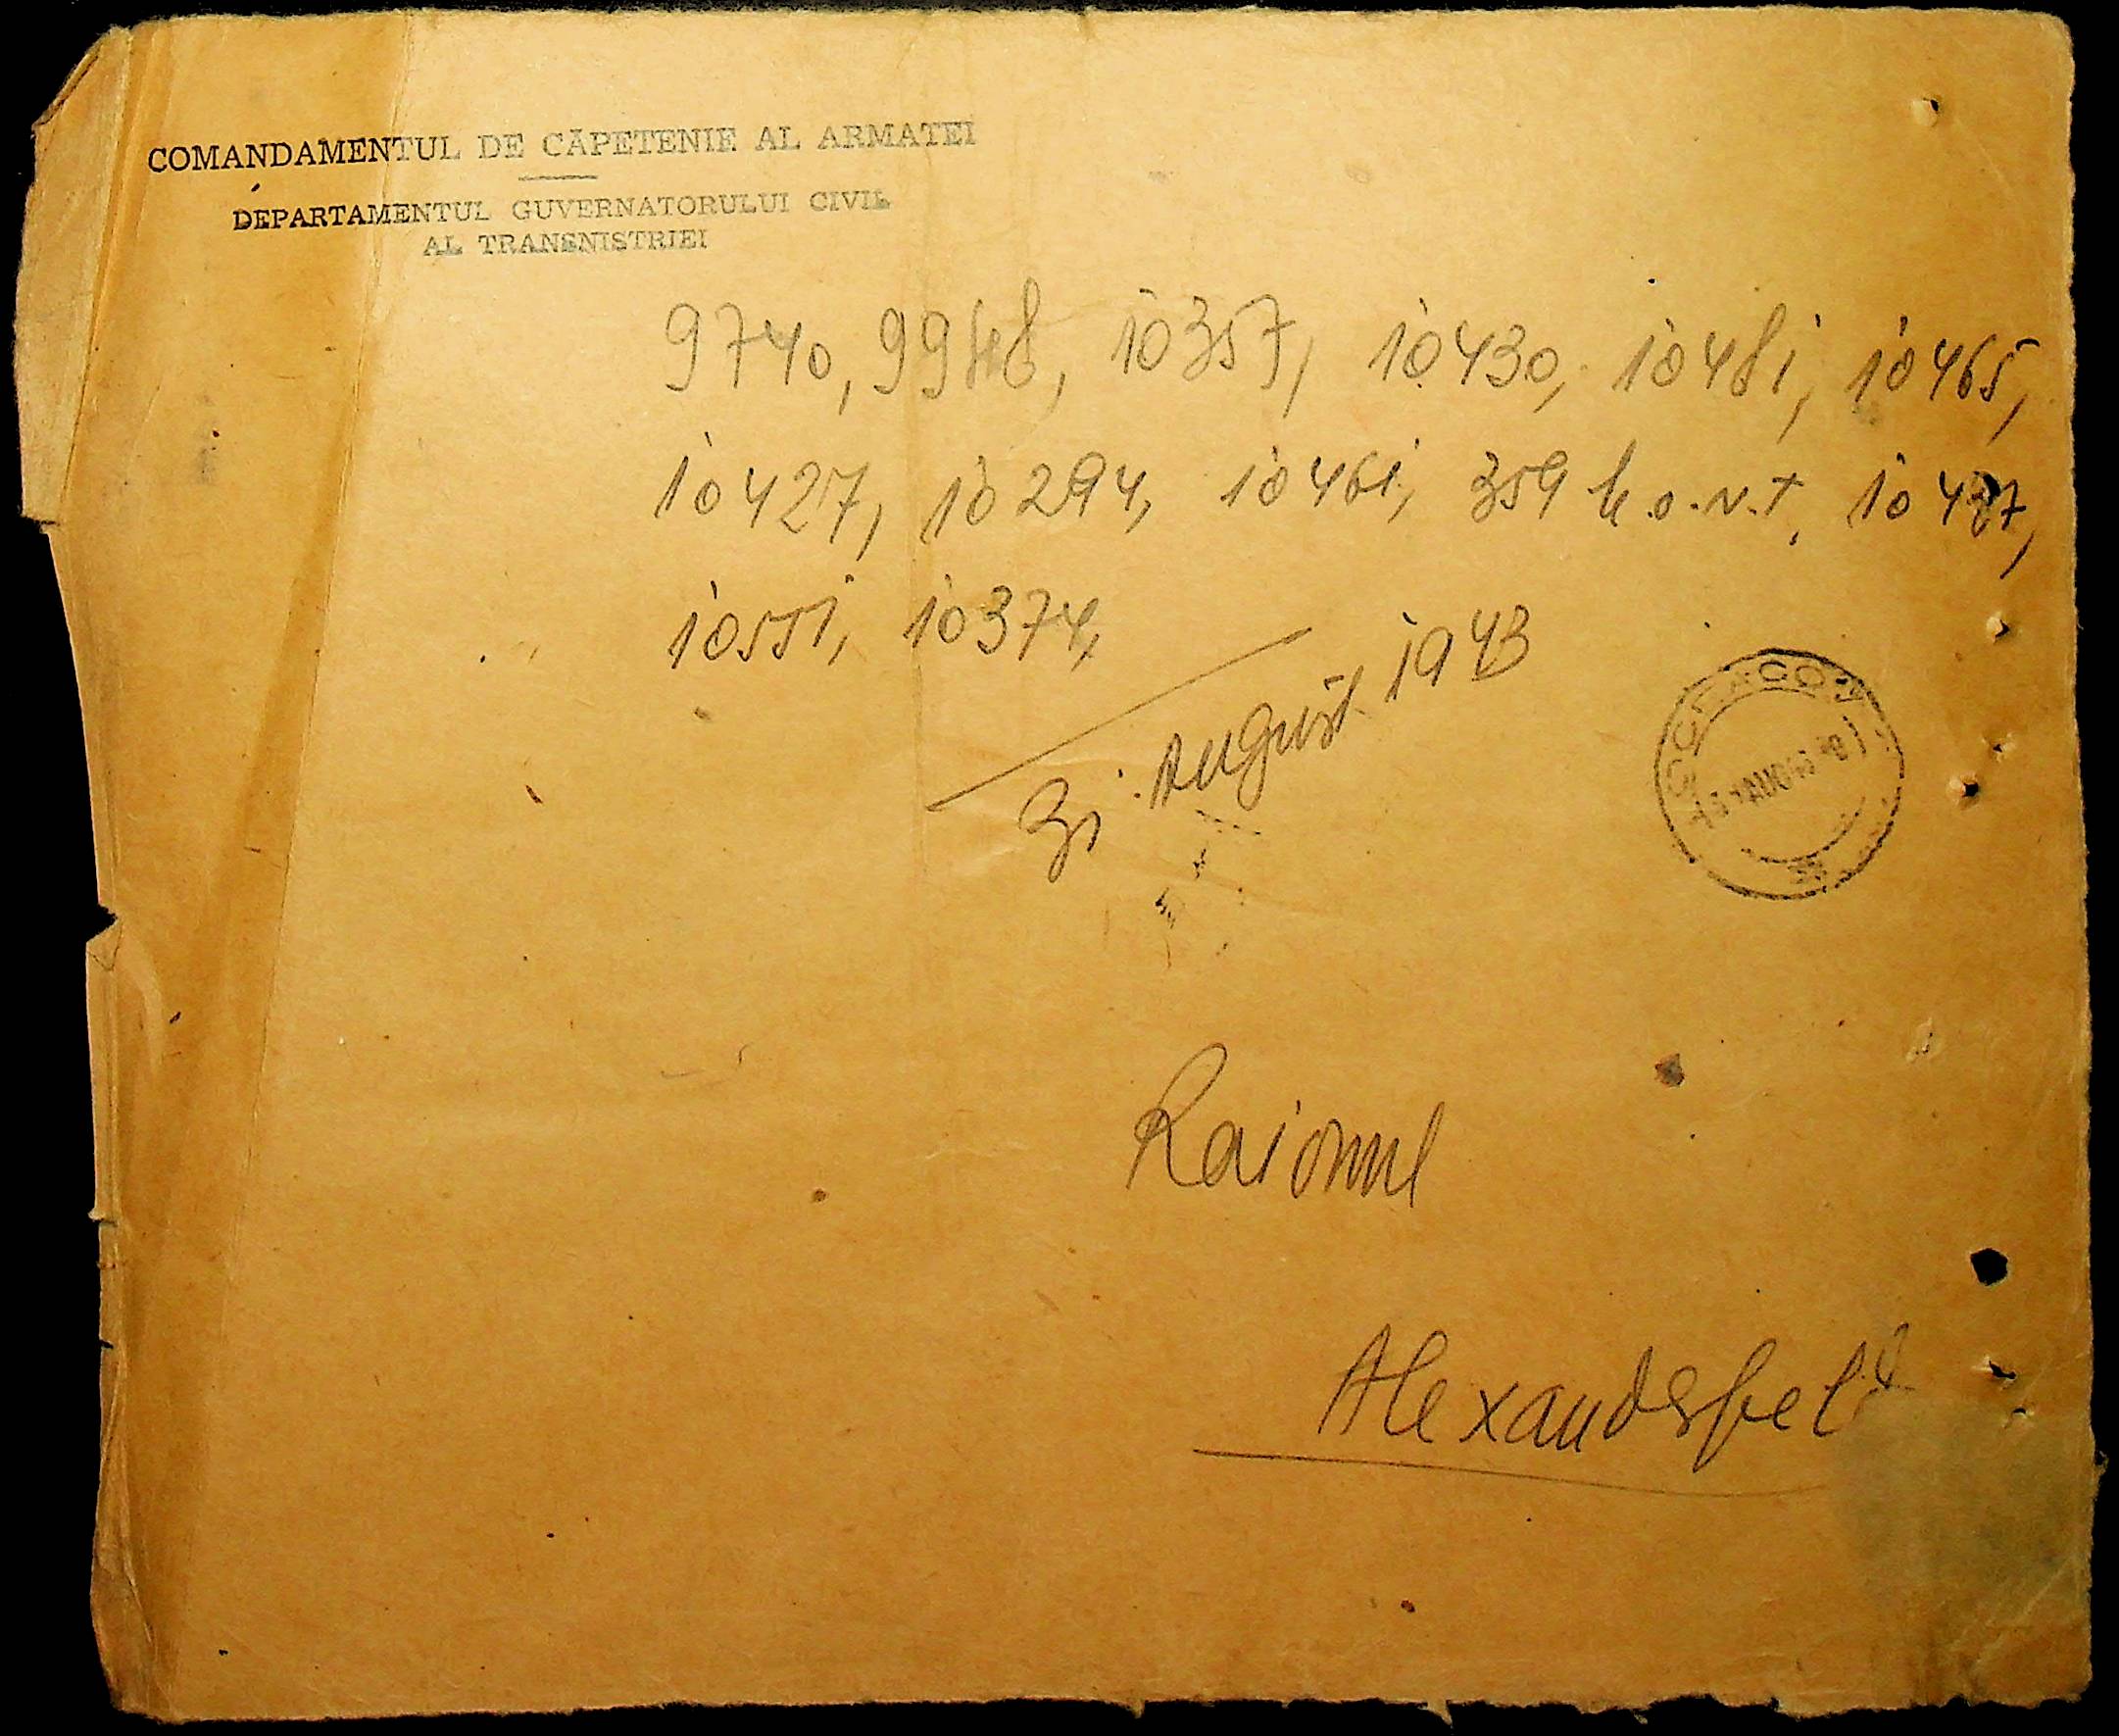 COMANDAMENTUL DE CĂPETENIE AL ARMATEI
DEPARTAMENTUL GUVERNATORULUI CIVIL
AL TRANSNISTRIEI
9740, 9948, 10357, 10430, 10481, 10465,
10427, 10294, 10461, 359 10437,
10551, 10374,
31 August 1943
Raionul
Alexanderfeld